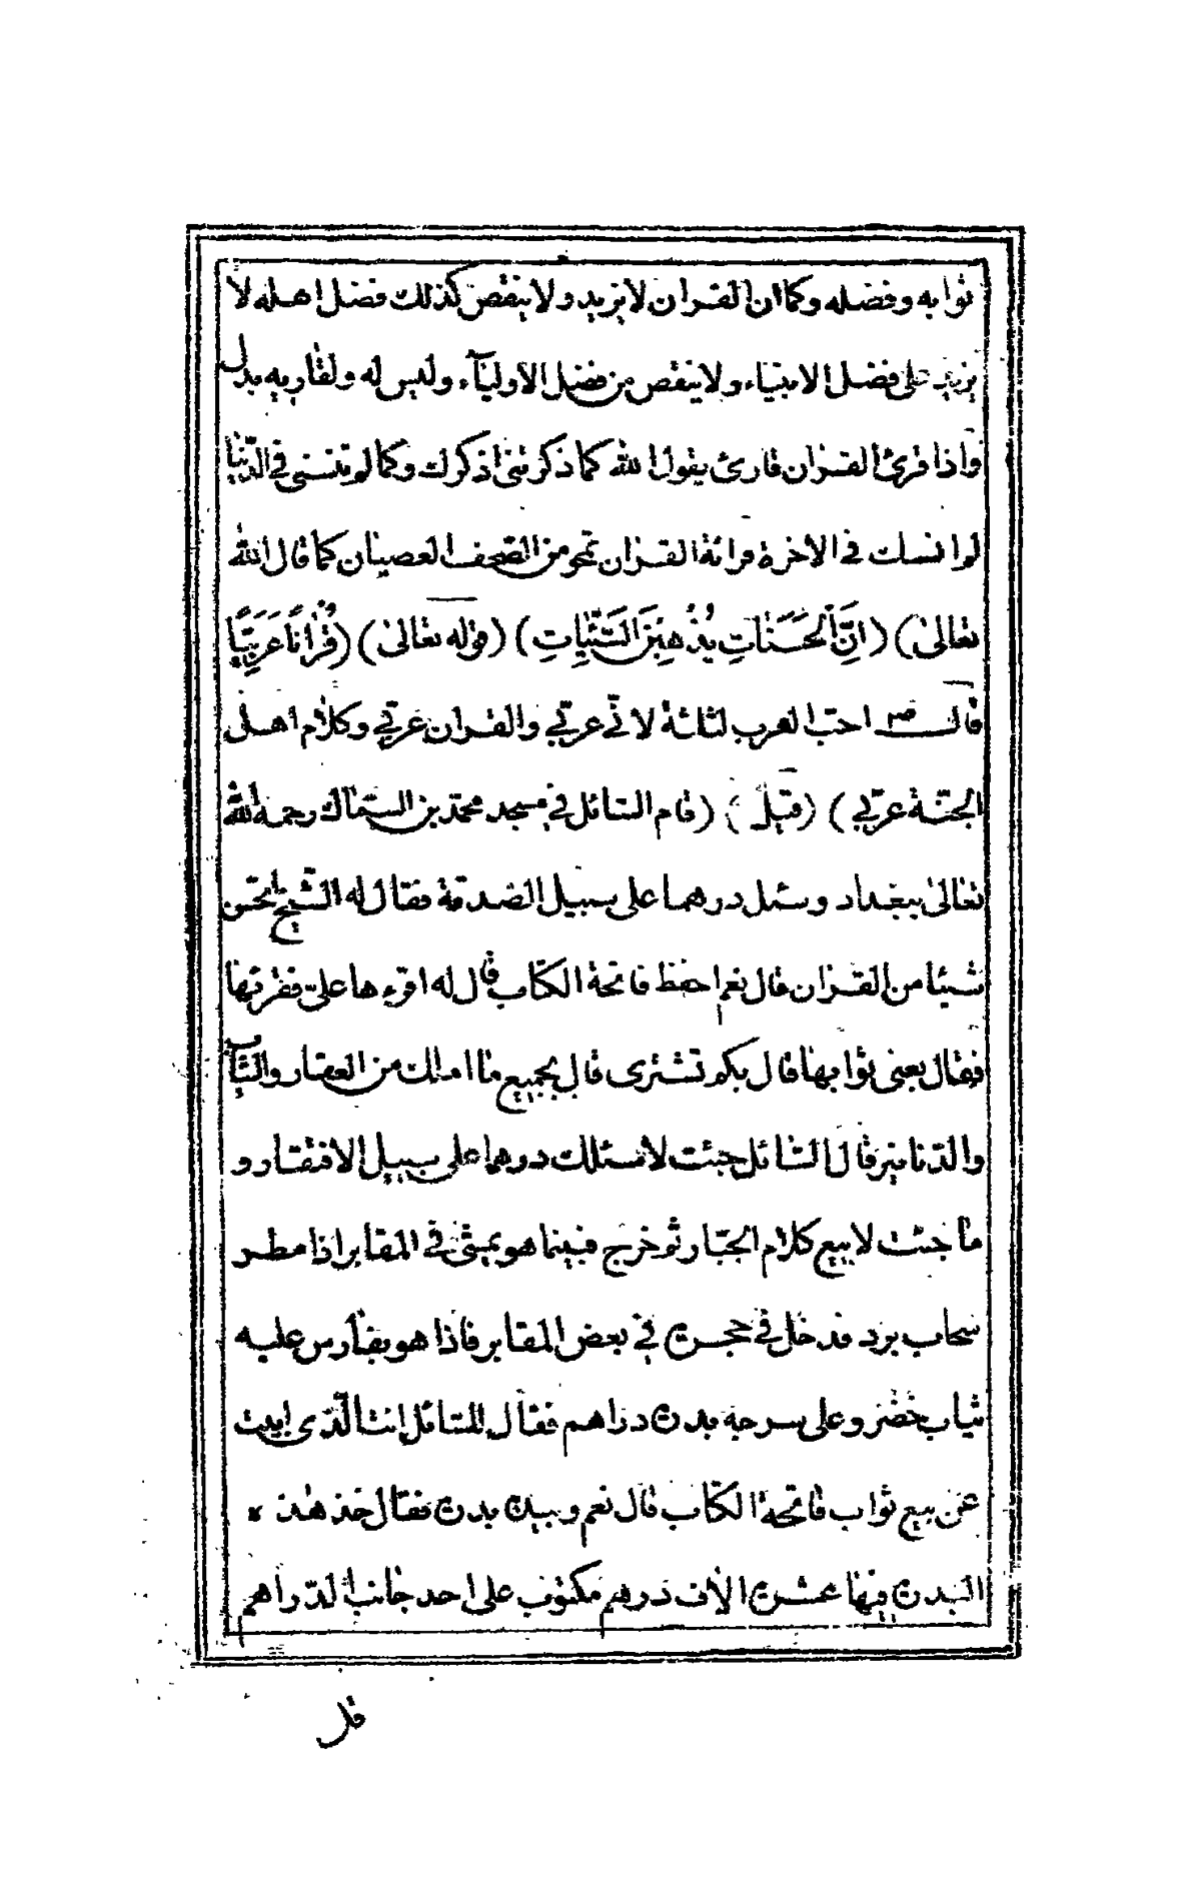 ثوابه وفضله وكما ان القران لا يزيد ولا ينقص كذلك فضل اهله لا
يزيد على فضل الانبياء ولا ينقص من فضل الاوليآء وليس له ولقاريه بدل
واذا قرئ القران قارئ يقول الله كما ذكرتنى اذكرك وكما لم تنسنى فى الدّنيا
لم انسك فى الاخرة قرائة القران تمحو من الصّحف العصيان كما قال الله
تعالى) (اِنَّ الْحَسَنَاتِ يُذْهِبْنَ السَّيِّئَاتِ) (قوله تعالى) (قُرْاٰنًا عَرَبِيًّا
قالــ ص احبّ العرب لثلثة لانّى عربّى والقران عربّى وكلام اهل
الجنّة عربّى) (قيل) (قام السّائل فى مسجد محمّد بن السمّاك رحمه الله
تعالى ببغداد وسئل درهما على سبيل الصدقة فقال له الشّيخ اتحسن
شيئا من القران قال نعم احفظ فاتحة الكتاب قال له اقرءها علىّ فقرئها
فقال بعنى ثوابها قال بكم تشترى قال بجميع ما املك من العقار والثّياب
والدّنانير قال السّائل جئت لاسئلك درهما على سبيل الافتقار و
ما جئت لابيع كلام الجبّار ثمّ خرج فبينما هو يمشى فى المقابر اذا مطر
سحاب برد فدخل فى حجرة فى بعض المقابر فاذا هو بفارس عليه
ثياب خضر وعلى سرجه بدرة دراهم فقال للسّائل انت الّذى ابيت
عن بيع ثواب فاتحة الكتاب قال نعم وبيده بدرة فقال خذ هذه
البدرة فيها عشرة الاف درهم مكتوب على احد جانب الدّراهم
قل